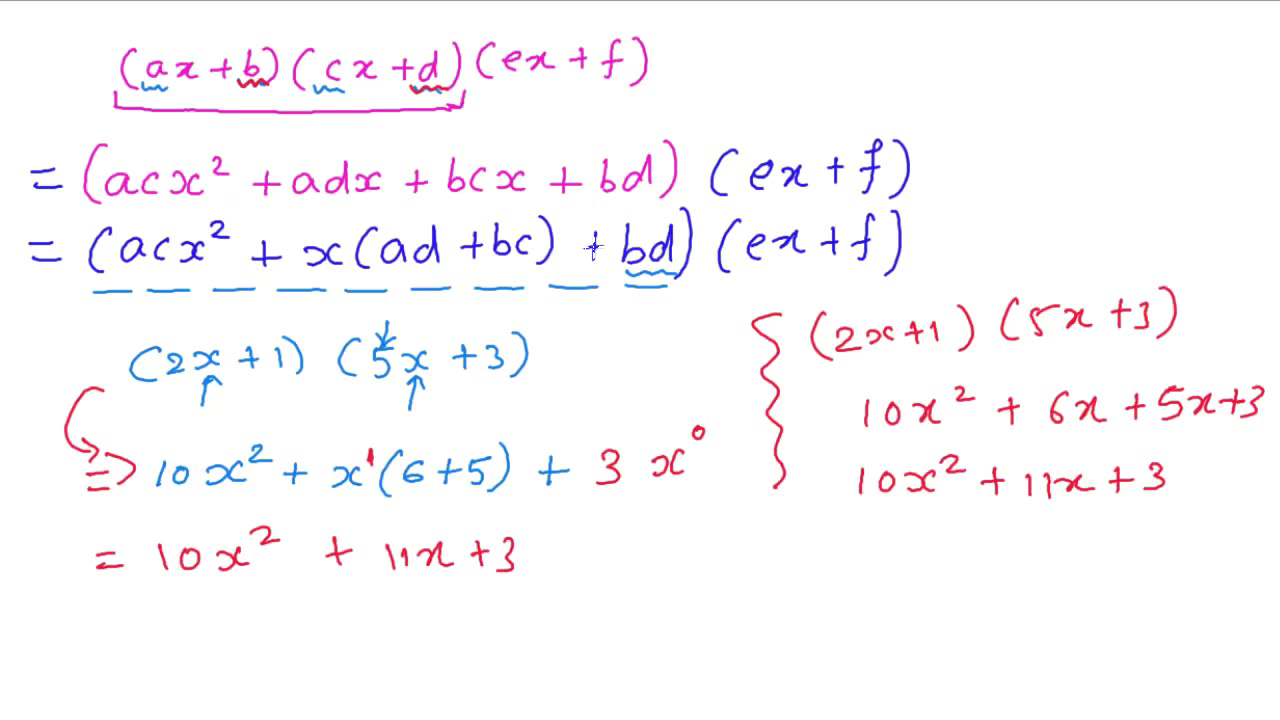 (ax + b) (cx + d) (ex + f)
= (acx² + adx + bcx + bd) (ex + f)
= (acx² + x(ad + bc) + bd) (ex + f)
(2x + 1) (5x + 3)
=> 10x² + x¹(6 + 5) + 3x⁰
= 10x² + 11x + 3
(2x + 1) (5x + 3)
10x² + 6x + 5x + 3
10x² + 11x + 3